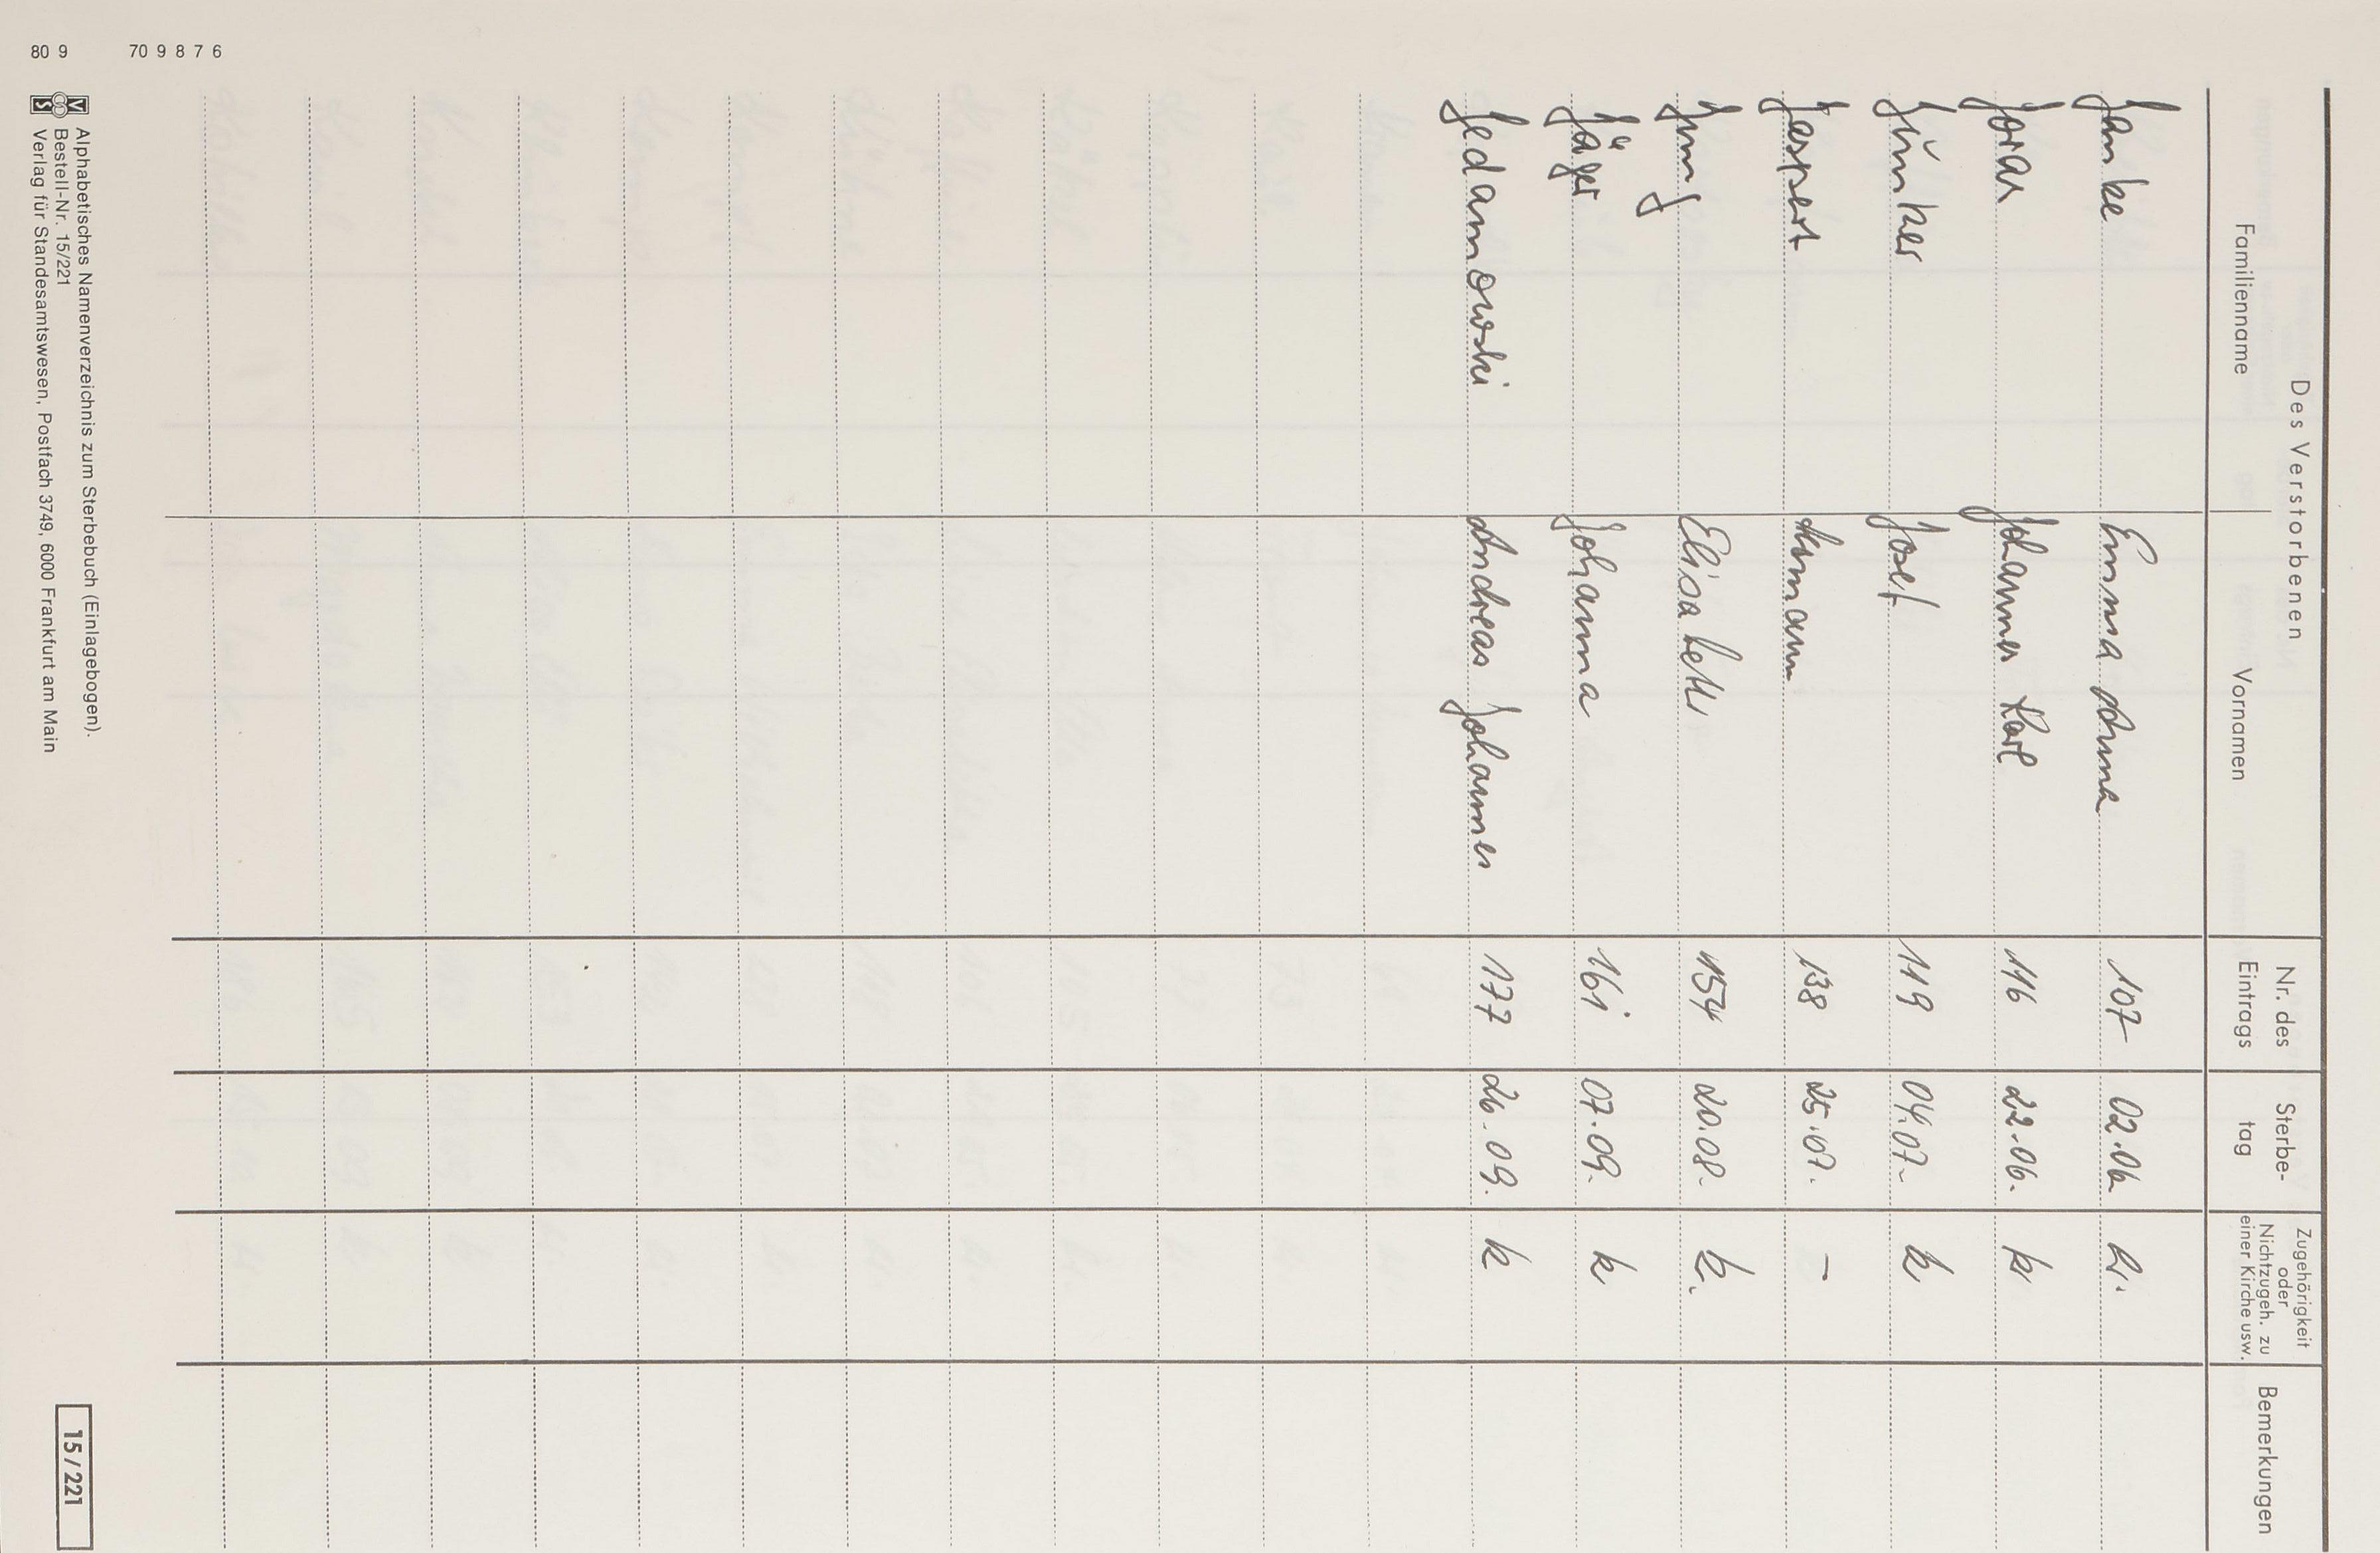 Des Verstorbenen
Familienname Vornamen Nr. des Eintrags Sterbe-tag Zugehörigkeit oder Nichtzugeh. zu einer Kirche usw. Bemerkungen
Janke Emma Anna 107 02.06 k.
Johannes Karl 116 22.06. k
Junker Josef 119 04.07. k
Jaspert Hermann 138 25.07. –
Jung Elisabeth 154 20.08. k.
Jäger Johanna 161 07.09. k
Jedamowski Andreas Johannes 177 26.09. k
Alphabetisches Namenverzeichnis zum Sterbebuch (Einlagebogen).
Bestell-Nr. 15/221
Verlag für Standesamtswesen, Postfach 3749, 6000 Frankfurt am Main
15/221
70 9 8 7 6
80 9